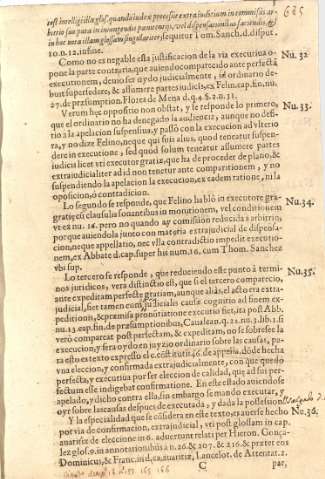 635
est intelligēdia glos. quando iudex processit extra iudicium in commissis ar-
bitrio suo puta in inuengendis parentum, vel dispensationibus faciendis, &
in hoc nota illam glossam singulariter, sequitur Tom. Sanch. d. disput.
10. n. 12. in fine.
Como no es negable esta justificacion de la via executiua o-
pone la parte contraria, que auiendo comparecido ante perfectā
executionem, deuio ser oydo judicialmente, in ordinario de-
bunt supersedere, & assumere partes iudicis, ex Felin. cap. En nu.
27. de præsumption. Flores de Mena d. q. 4. §. 2. n. 31.
Nu. 32.
Verum hæc oppositio non obstat, y se responde lo primero,
que el ordinario no ha denegado la audiencia, aunque no defi-
rio à la apelacion suspensiua, y passò con la execucion ad vlterio
ra, y no dize Felino, neque qui seis alius, quod teneatur supersē-
dere in executione, sed quod solum teneatur assumere partes
iudicis licet vti executor gratiæ, que ha de proceder de plano, &
extrajudicialiter ad id non tenetur ante comparitionem, y no
suspendiendo la apelacion la execucion, ex eadem ratione, ni la
oposicion, ò contradicion.
Nu. 33.
Lo segundo se responde, que Felino hablò in executore gra-
tiæ, ex clausula sonantibus in motionem, vel conditionem
vt ex nu. 16. pero no quando ay comission reducida à arbitrio,
porque auiendola junto con materia extrajudicial de dispensa-
cion, neque appellatio, nec vlla contradictio impedit executio-
nem, ex Abbate d. cap. super his num. 10. cum Thom. Sanchez
vbi sup.
Nu. 34.
Lo tercero se responde, que reduciendo este punto à termi-
nos juridicos, vera distinctio est, que si el tercero comparecio,
ante expeditam perfectè gratiam, aunque alias, el acto era extra-
judicial, fiet tamen cum judicialis causæ cognitio ad finem ex-
peditionis, & præmissa prænotitatione executio fiet, ita post Abb.
nu. 13. cap. fin. de præsumptionibus, Caualcan. q. 21. nu. 3. lib. 1. si
verò compareat post perfectam, & expeditam, no se sobresee la
execucion, y sera oydo en juyzio ordinario sobre las causas, pa-
ra esto es texto expresso el c. constitutis 46. de appella. dòde hecha
vna eleccion, y confirmada extrajudicialmente, con que quedò
perfecta, y executiua por ser eleccion de calidad, que ad sui per-
fectam esse indigebat confirmatione. En este estado auiendose
apelado, y dicho contra ella, sin embargo se mandò executar, y
oyr sobre las causas despues de executada, y dada la possession.
Nu. 35.
Y la especialidad que se cōsidera en este texto, es auerse hecho
por via de confirmacion, extrajudicial, vti post glossam in cap.
auaritiæ de electione in 6. aduertunt relati per Hieron. Gonça-
lez glos. 9. in annotationibus à n. 26. & 207. & 216. & præter eos
Dominicus, & Franc. in d. ca. auaritiæ, Lancelot. de Attentat. 2.
Nu. 36.
C
par,